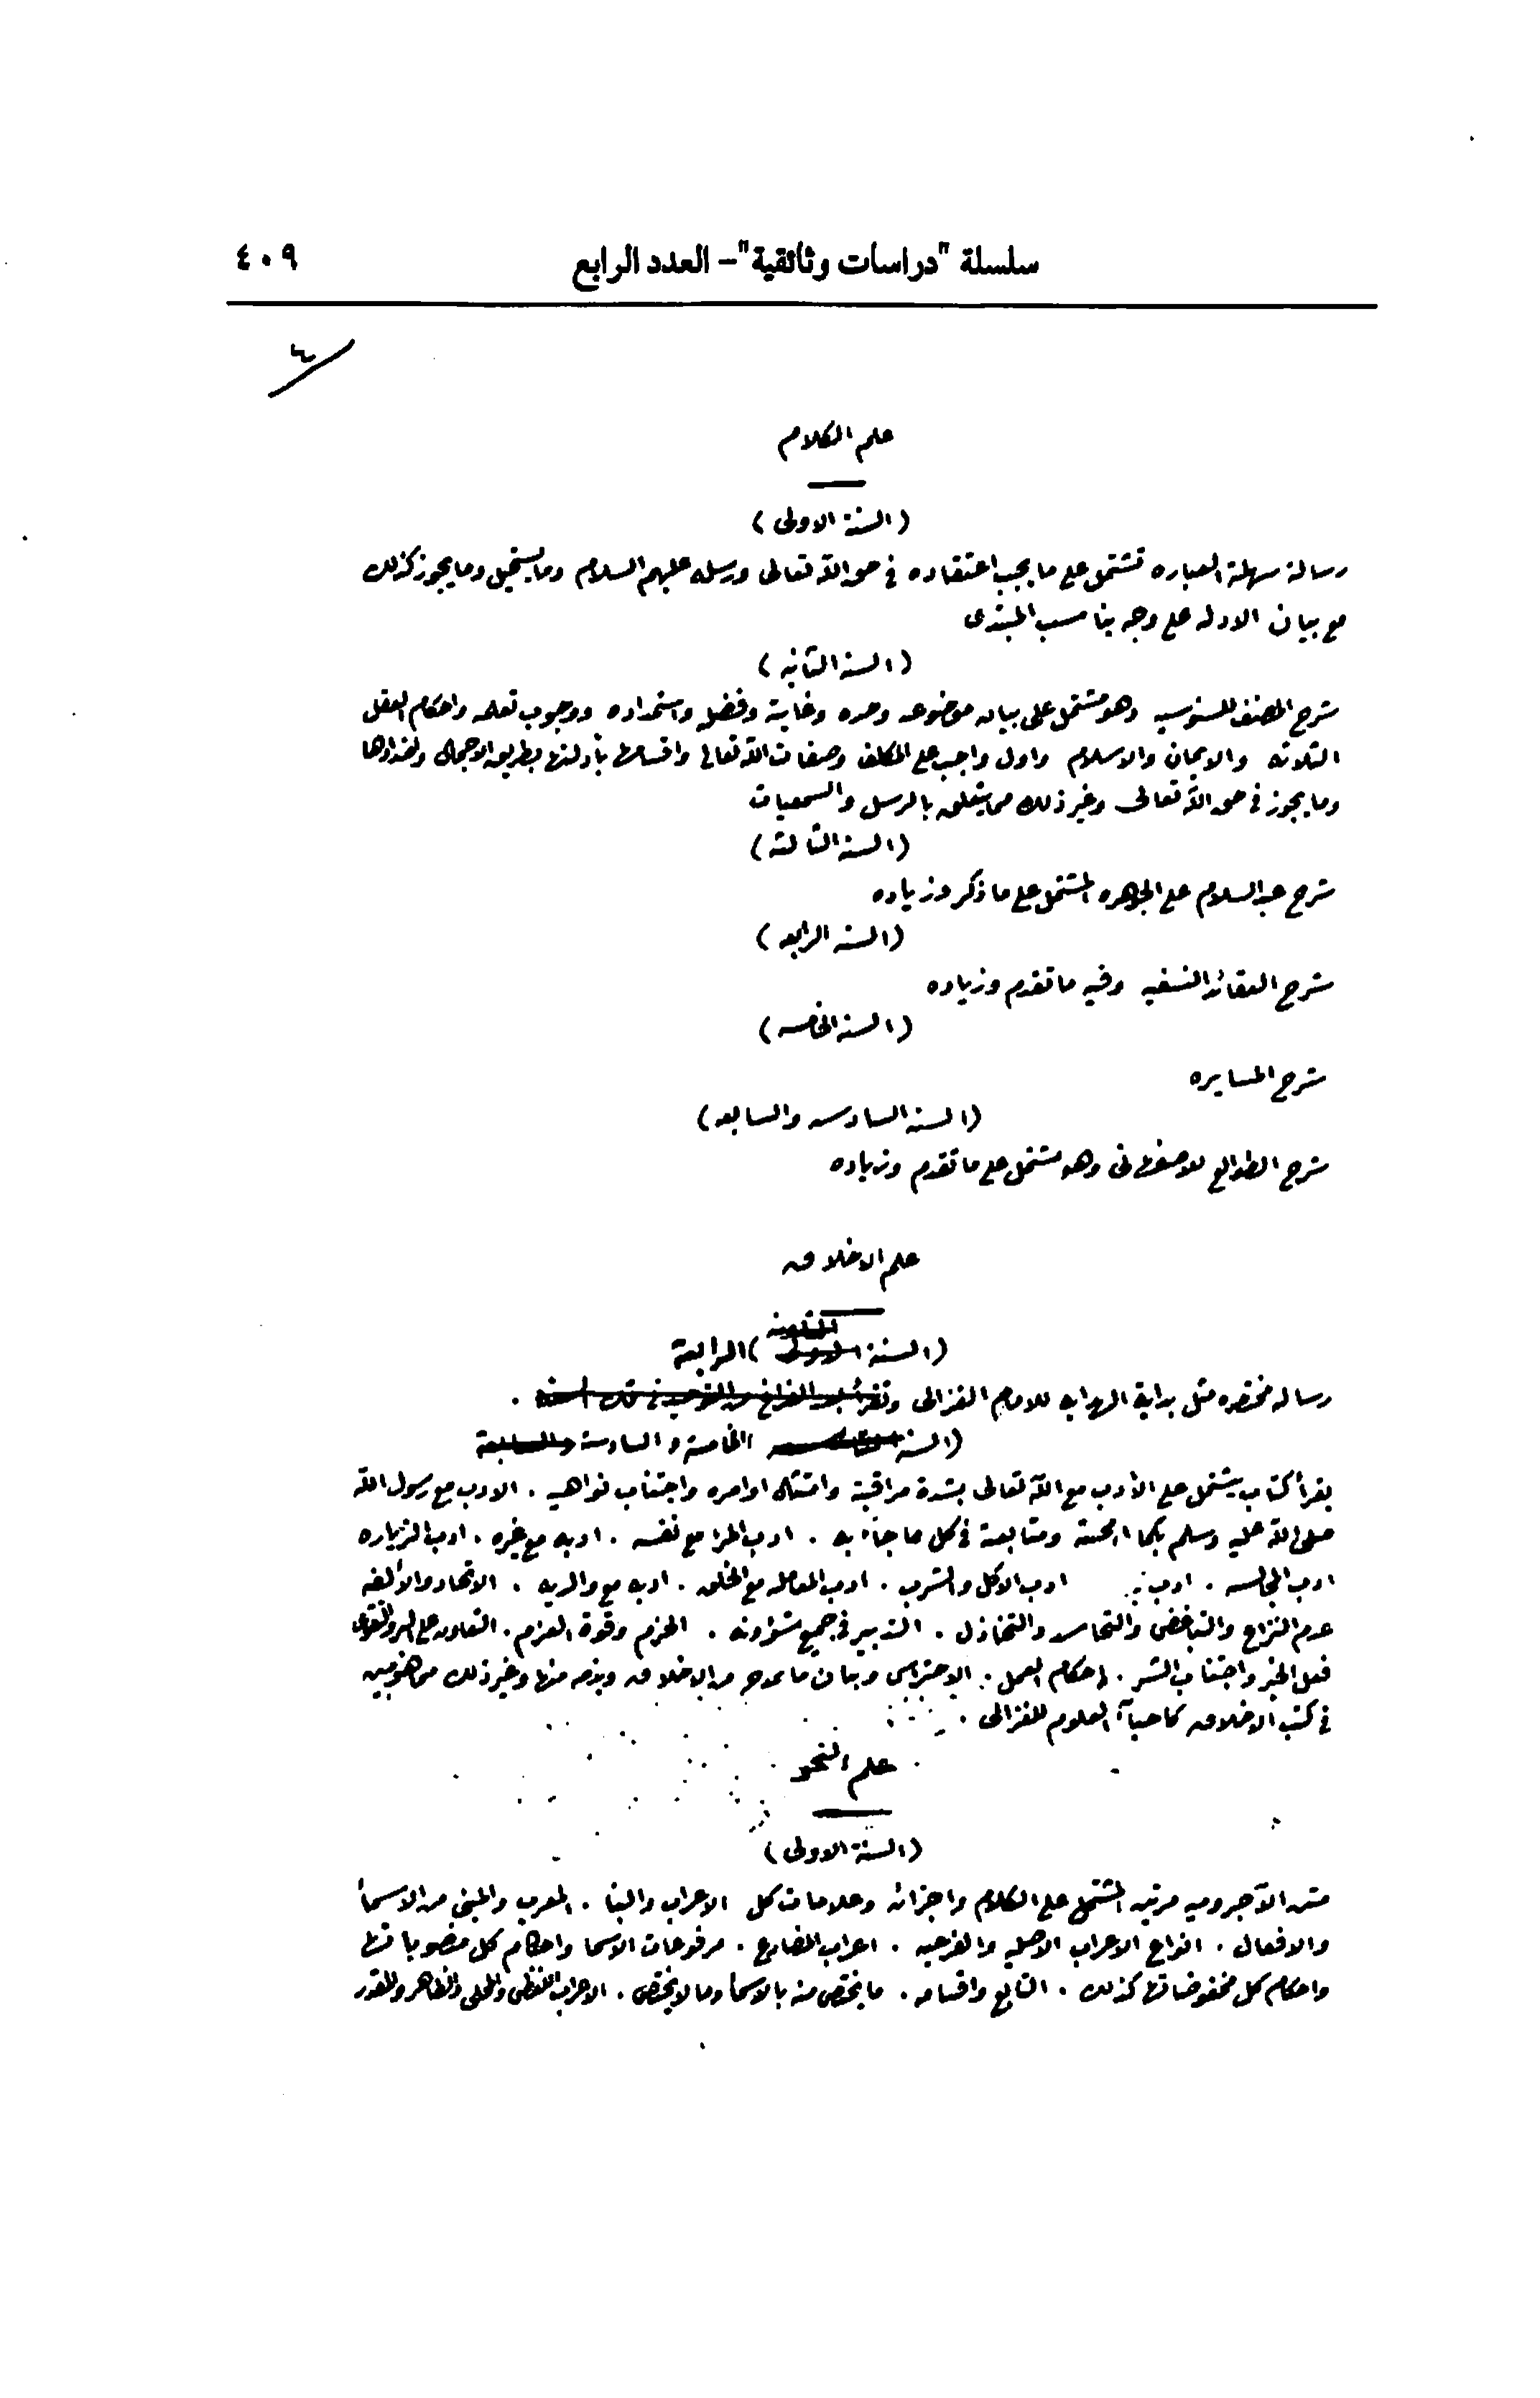 سلسلة "دراسات وثائقية" – العدد الرابع ٤٠٩
٤
علم الكلام
(السنة الاولى)
رسالة سهلة العباره تشتمل على ما يجب اعتقاده في حق الله تعالى ورسله عليهم السلام وما يستحيل وما يجوز كذلك
مع بيان الادله على وجه يناسب المبتدى
(السنة الثانيه)
شرح المصنف للسنوسيه وهو مشتمل على بيان موضوعه وحده وغايته وفضله واستمداده ووجوب تعلمه واحكام العقل
الثلاثه والايمان والاسلام واول واجب على المكلف وصفات الله تعالى واقسامها بأدلتها بطريق الاجمال واضدادها
وما يجوز في حق الله تعالى وغير ذلك مما يتعلق بالرسل والسمعيات
(السنة الثالثه)
شرح عبد السلام على الجوهره المشتمل على ما ذكر وزياده
(السنه الرابعه)
شرح العقائد النسفيه وفيه ما تقدم وزياده
(السنة الخامسه)
شرح المسايره
(السنة السادسه والسابعه)
شرح الطوالع للاصفهانى وهو مشتمل على ما تقدم وزياده
علم الاخلاق
(السنة الاولى) الرابعة
رساله مختصره مثل بداية الهدايه للامام الغزالى وتقرأ بعد الفراغ من التوحيد في تلك السنه .
(السنة الخامسة والسادسة والسابعة
يقرأ كتاب يشتمل على الأدب مع الله تعالى بشدة مراقبته وامتثال اوامره واجتناب نواهيه . الادب مع رسول الله
صلى الله عليه وسلم بكمال محبته ومتابعته في كل ما جاء به . ادب المرا مع نفسه . ادبه مع غيره . ادب الزياره
ادب المجالسه . ادب ادب الاكل والشرب . ادب المعامله مع الخلق . ادبه مع والديه . الاتحاد والألفه
عدم النزاع والتباغض والتحاسد والتخاذل . التدبير في جميع شؤونه . الحزم وقوة العزم . التعاون على البر والتقوى
فعل الخير واجتناب الشر . احكام العمل . الاحتراس وبيان ما يمدح من الاخلاق ويذم منها وغير ذلك مما هو مبين
في كتب الاخلاق كاحيآء العلوم للغزالى .
علم النحو
(السنة الاولى)
متن الآجروميه مرتيه المشتمل على الكلام واجزائه وعلامات كل الاعراب والبنا . المعرب والمبنى من الاسمأ
والافعال . انواع الاعراب الاصليه والفرعيه . اعراب المضارع . مرفوعات الاسما واحكام كل منصوباتها
واحكام كل مخفوضاتها كذلك . التابع واقسامه . ما يختص منه بالاسما وما لا يختص . الاعراب اللفظى والمحلى والظاهر والمقدر